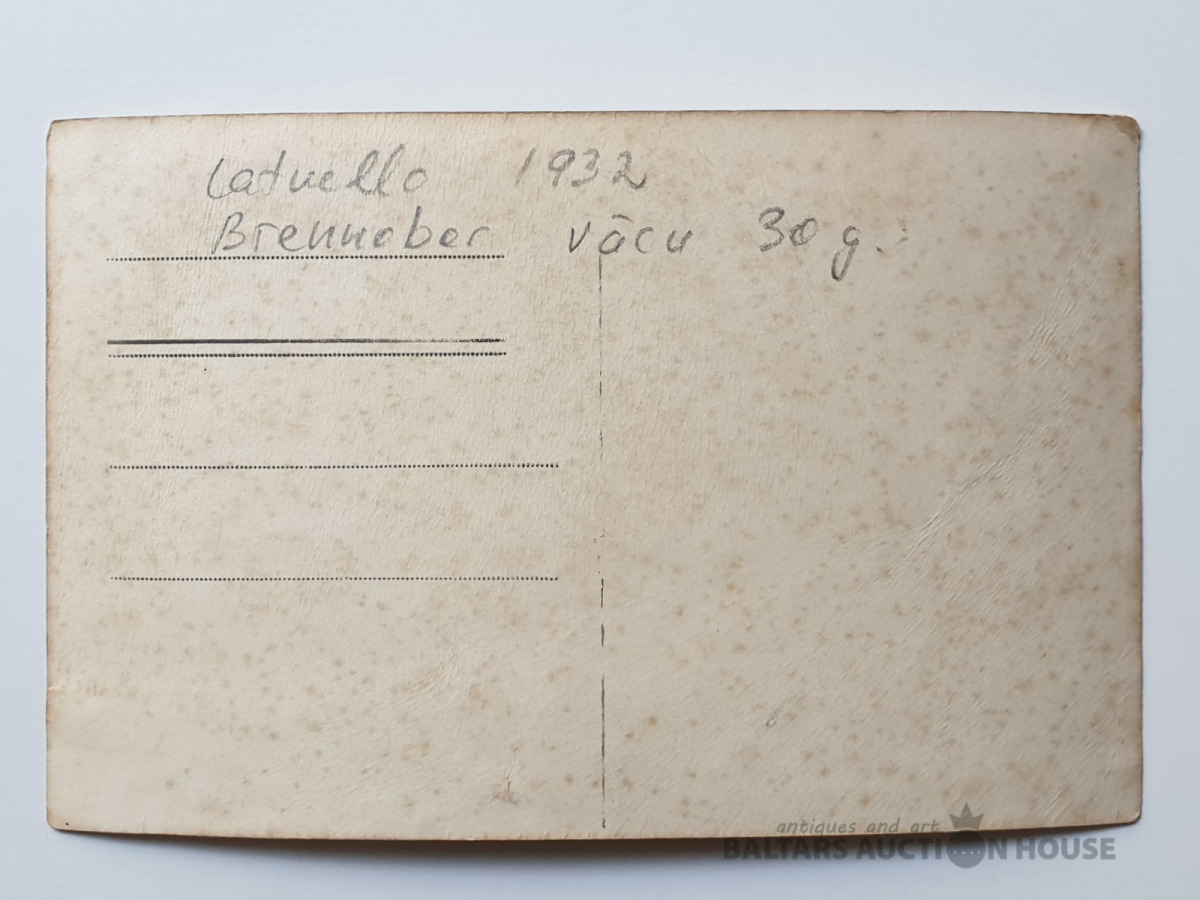 Latvello 1932
Brennabor vācu 30 g.
antiques and art
BALTARS AUCTION HOUSE